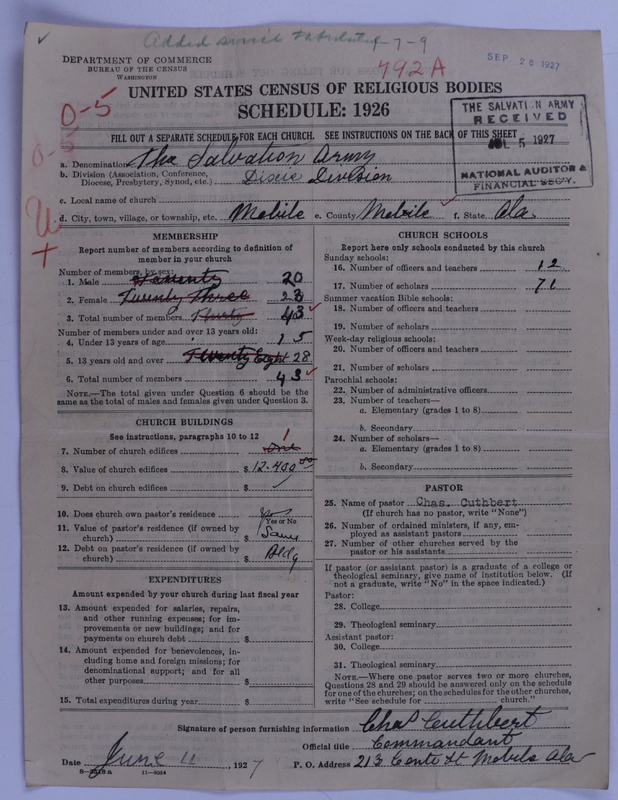 Added since tabulated - 7-9
DEPARTMENT OF COMMERCE
BUREAU OF THE CENSUS
WASHINGTON
SEP 26 1927
792A
UNITED STATES CENSUS OF RELIGIOUS BODIES
SCHEDULE: 1926
0-5
0-5
THE SALVATION ARMY
RECEIVED
5 1927
NATIONAL AUDITOR &
FINANCIAL SEC'Y.
FILL OUT A SEPARATE SCHEDULE FOR EACH CHURCH. SEE INSTRUCTIONS ON THE BACK OF THIS SHEET
a. Denomination The Salvation Army
b. Division (Association, Conference, Diocese, Presbytery, Synod, etc.) Dixie Division
c. Local name of church
d. City, town, village, or township, etc. Mobile e. County Mobile f. State Ala.
MEMBERSHIP
Report number of members according to definition of
member in your church
Number of members, by sex:
1. Male 20
2. Female Twenty Three 23
3. Total number of members 43
Number of members under and over 13 years old:
4. Under 13 years of age 15
5. 13 years old and over Twenty Eight 28
6. Total number of members 43
NOTE.—The total given under Question 6 should be the
same as the total of males and females given under Question 3.
CHURCH BUILDINGS
See instructions, paragraphs 10 to 12
7. Number of church edifices One 1
8. Value of church edifices $ 12.400 00
9. Debt on church edifices $
10. Does church own pastor's residence Yes
Yes or No
11. Value of pastor's residence (if owned by
church) $ Same
12. Debt on pastor's residence (if owned by
church) $ Bldg
EXPENDITURES
Amount expended by your church during last fiscal year
13. Amount expended for salaries, repairs,
and other running expenses; for im-
provements or new buildings; and for
payments on church debt $
14. Amount expended for benevolences, in-
cluding home and foreign missions; for
denominational support; and for all
other purposes $
15. Total expenditures during year $
CHURCH SCHOOLS
Report here only schools conducted by this church
Sunday schools:
16. Number of officers and teachers 12
17. Number of scholars 71
Summer vacation Bible schools:
18. Number of officers and teachers
19. Number of scholars
Week-day religious schools:
20. Number of officers and teachers
21. Number of scholars
Parochial schools:
22. Number of administrative officers
23. Number of teachers—
a. Elementary (grades 1 to 8)
b. Secondary
24. Number of scholars—
a. Elementary (grades 1 to 8)
b. Secondary
PASTOR
25. Name of pastor Chas. Cuthbert
(If church has no pastor, write "None")
26. Number of ordained ministers, if any, em-
ployed as assistant pastors
27. Number of other churches served by the
pastor or his assistants
If pastor (or assistant pastor) is a graduate of a college or
theological seminary, give name of institution below. (If
not a graduate, write "No" in the space indicated.)
Pastor:
28. College
29. Theological seminary
Assistant pastor:
30. College
31. Theological seminary
NOTE.—Where one pastor serves two or more churches,
Questions 28 and 29 should be answered only on the schedule
for one of the churches; on the schedules for the other churches,
write "See schedule for church."
Signature of person furnishing information Chas Cuthbert
Official title Commandant
Date June 11, 1927 P. O. Address 213 Conti St Mobile Ala
8-2518a 11-9034